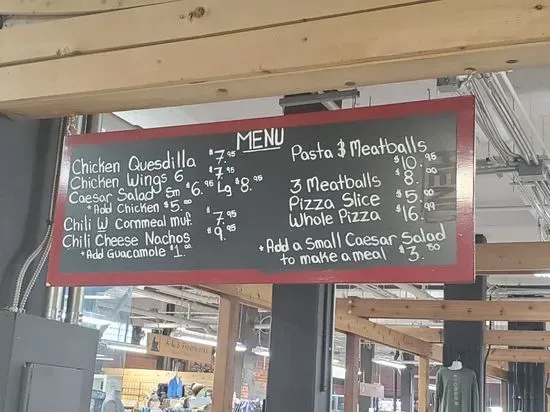 MENU
Chicken Quesdilla $7.95
Chicken Wings 6 $7.95
Caesar Salad Sm $6.95 Lg $8.95
*Add Chicken $5.00
Chili W Cornmeal muf. $7.95
Chili Cheese Nachos $9.95
*Add Guacamole $1.00
Pasta 3 Meatballs
$10.95
3 Meatballs $8.00
Pizza Slice $5.00
Whole Pizza $16.99
*Add a Small Caesar Salad
to make a meal $3.50